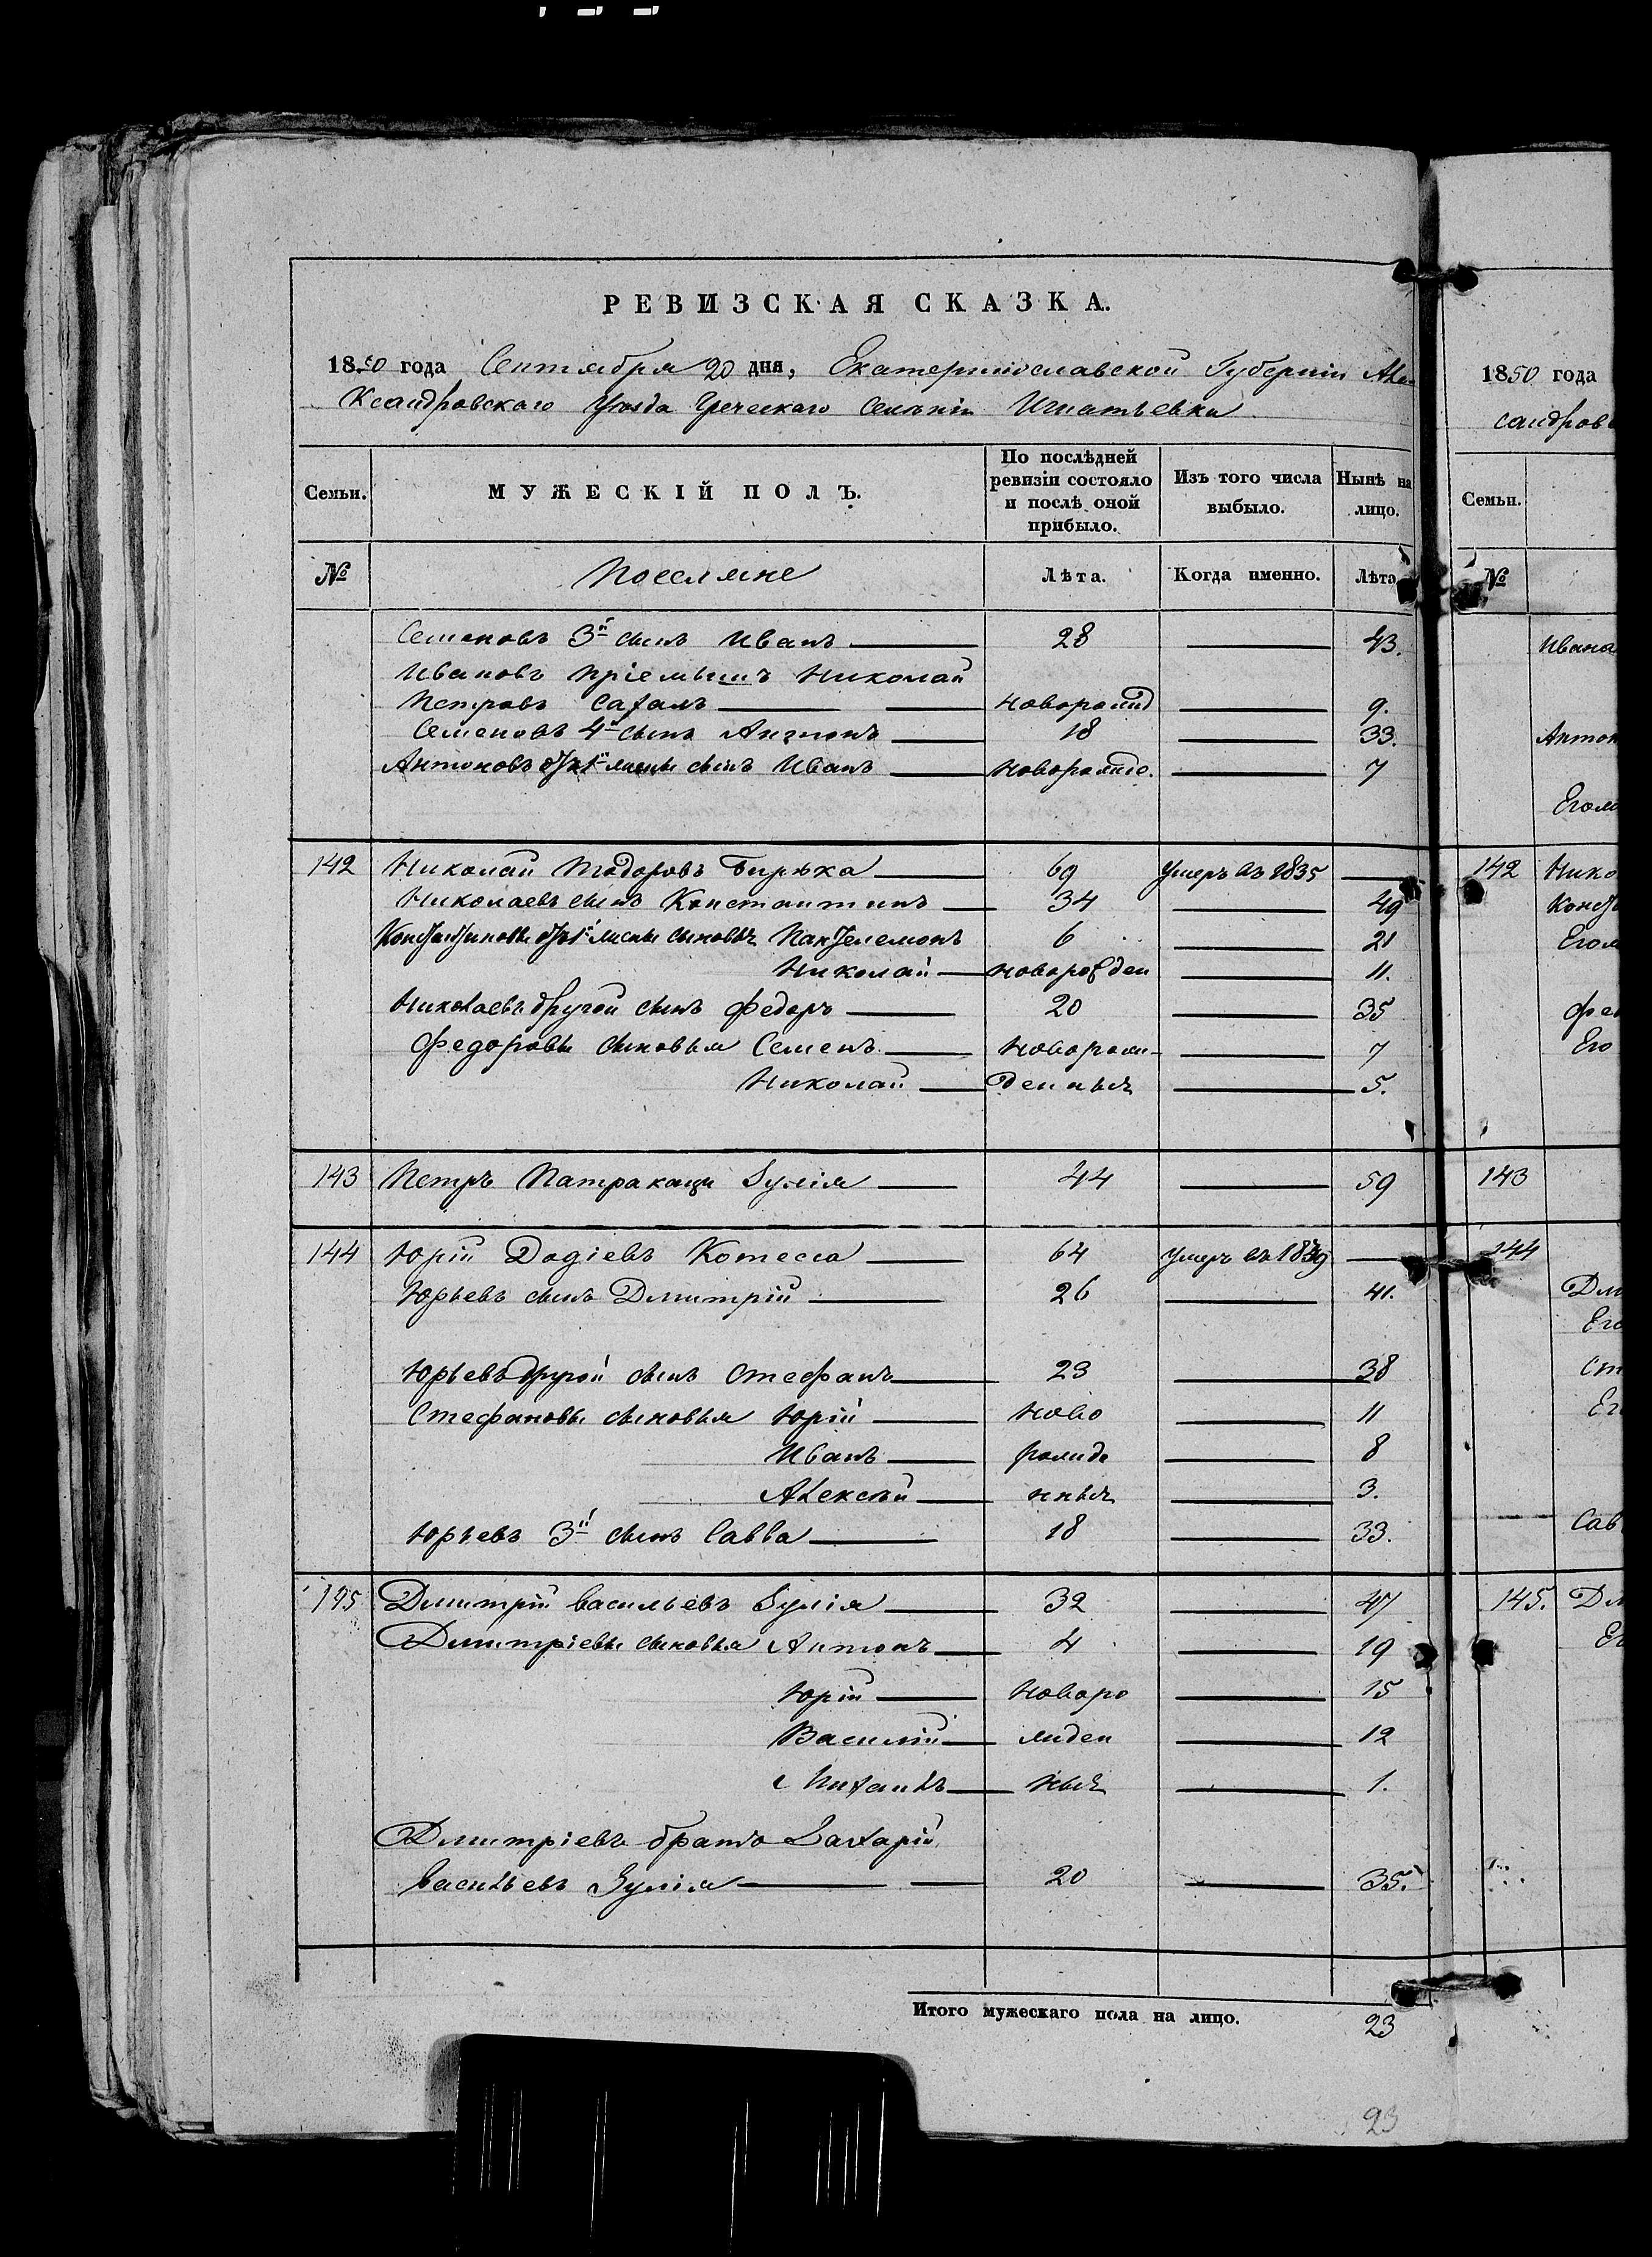 РЕВИЗСКАЯ СКАЗКА.
1850 года Сентября 20 дня, Екатеринославской Губерніи Але
ксандровскаго Уѣзда Греческаго Селенія Игнатьевки
Семьи.
МУЖЕСКІЙ ПОЛЪ.
По послѣдней ревизіи состояло и послѣ оной прибыло.
Изъ того числа выбыло.
Нынѣ на лицо.
№
Поселяне
Лѣта.
Когда именно.
Лѣта
Семеновъ 3й сынъ Иванъ 28 43.
Ивановъ пріемышъ Николай
Петровъ новорожд 9.
Семеновъ 4й сынъ Антонъ 18 33.
Антоновъ отъ 1й жены сынъ Иванъ новорожде. 7
142 Николай Тодоровъ 69 умеръ въ 1835
Николаевъ сынъ Константинъ 34 49
Константиновы отъ 1й жены сыновья Пантелемонъ 6 21
Николай новорожден 11.
Николаевъ другой сынъ Федоръ 20 35
Федоровы сыновья Семенъ новорож- 7
Николай денныхъ 5.
143 Петръ Зуліа 44 59
144 Юрій Дадіевъ Котесса 64 умеръ въ 1839
Юрьевъ сынъ Дмитрій 26 41.
Юрьевъ другой сынъ Стефанъ 23 38
Стефановы сыновья Юрій ново 11
Иванъ рожде 8
Алексѣй нныхъ 3.
Юрьевъ 3й сынъ Савва 18 33.
145 Дмитрій Васильевъ Зуліа 32 47
Дмитріевы сыновья Антонъ 4 19
Юрій новоро 15
Василій жден 12
Михаилъ ныхъ 1.
Дмитріевъ братъ Захарій
Васильевъ Зуліа 20 35.
Итого мужескаго пола на лицо. 23
23
1850 года
сандров
Семьи.
№
Ивана
Антон
Егом
142 Нико
Конст
Егом
Фед
Его
143
144
Дми
Его
Сте
Ег
Сав
145. Дм
Ег